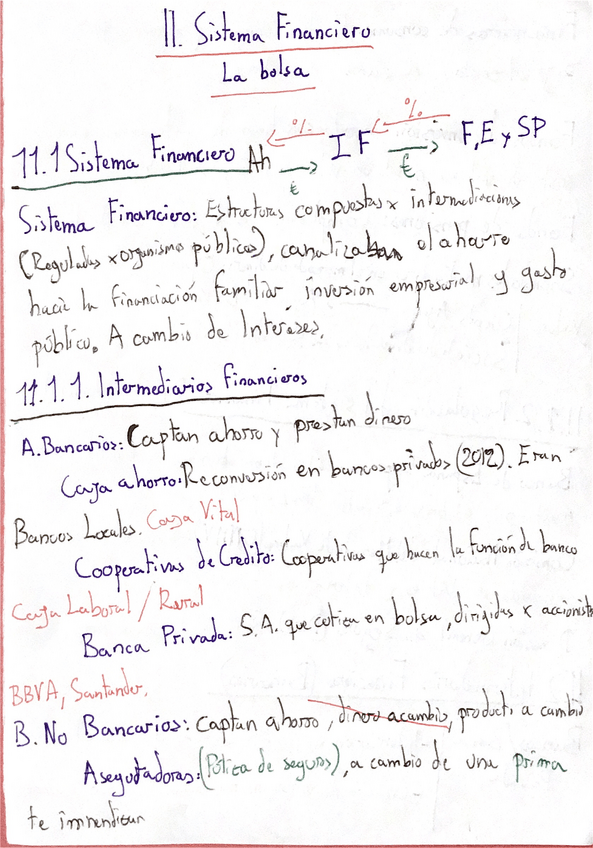 11. Sistema Financiero
La bolsa
11.1 Sistema Financiero Ah → € ← % I F → € ← % F, E y SP
Sistema Financiero: Estructuras compuestas x intermediaciones
(Reguladas x organismos públicos), canaliza el ahorro
hacia la financiación familiar inversión empresarial y gasto
público. A cambio de Intereses.
11.1.1. Intermediarios Financieros
A. Bancarios: Captan ahorro y prestan dinero
Caja ahorro: Reconversión en bancos privados (2012). Eran
Bancos Locales. Caja Vital
Cooperativas de Credito: Cooperativas que hacen la función de banco
Caja Laboral / Rural
Banca Privada: S.A. que cotiza en bolsa, dirigidas x accionist
BBVA, Santander.
B. No Bancarios: Captan ahorro, dinero a cambio, product a cambio
Aseguradoras: (Póliza de seguros), a cambio de una prima
te